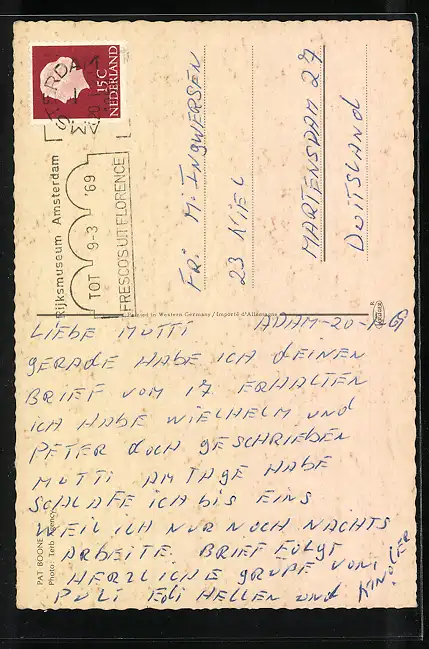 15 C
NEDERLAND
Rijksmuseum Amsterdam
TOT 9-3 '69
FRESCOS UIT FLORENCE
FR. M. INGWERSEN
23 KIEL
MARTENSDAM 27
DUITSLAND
Printed in Western Germany / Importé d'Allemagne
LIEBE MUTTI ADAM-20-1-69
GERADE HABE ICH DEINEN
BRIEF VOM 17 ERHALTEN
ICH HABE WIELHELM UND
PETER DOCH GESCHRIEBEN
MUTTI AM TAGE HABE
SCHLAFE ICH BIS EINS
WEIL ICH NUR NOCH NACHTS
ARBEITE. BRIEF FOLGT
HERZLICHE GRUPE VON
PULI EDI HELLEN UND KINDER
PAT BOONE
Photo: Terb Agency